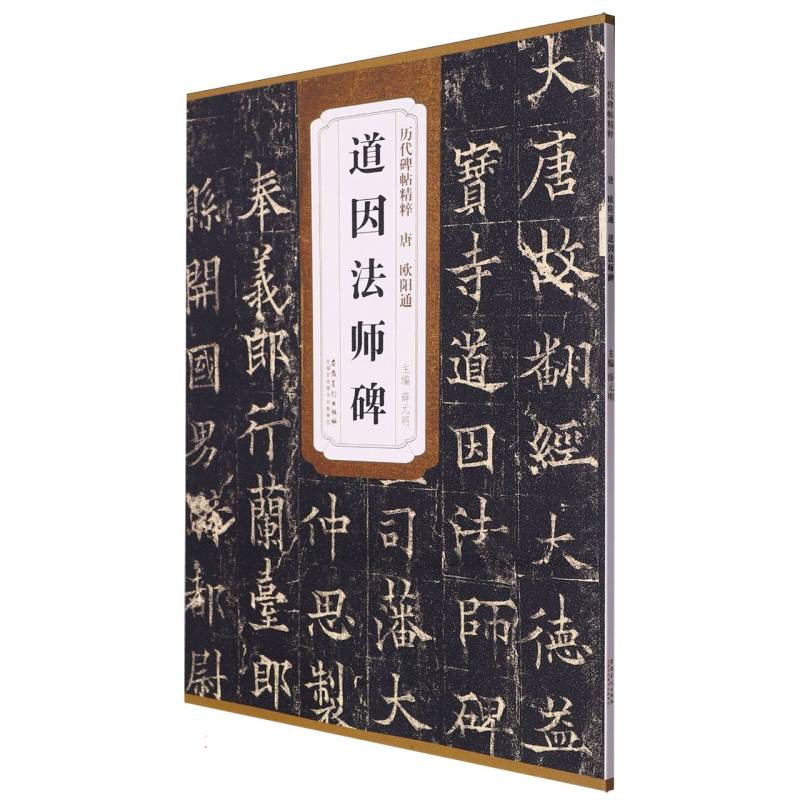 历代碑帖精粹 唐 欧阳通
道因法师碑
主编 薛元明
安徽美术出版社
大唐故翻經大德益
寶寺道因法師碑
司藩大
仲思製
奉義郎行蘭臺郎
縣開國男
都尉
历代碑帖精粹 唐 欧阳通 道因法师碑 主编 薛元明